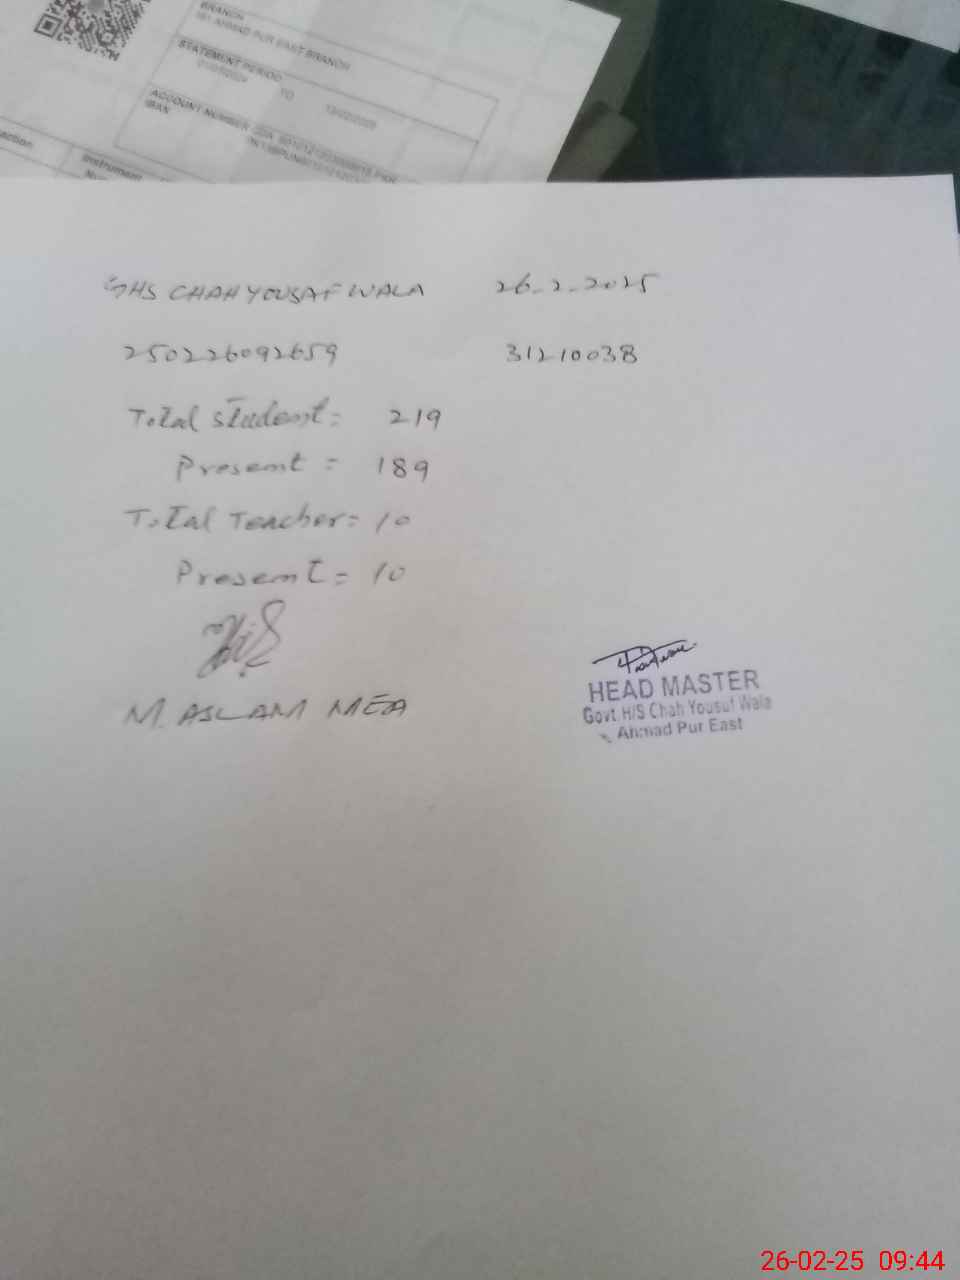 BRANCH
STATEMENT PERIOD
TO
ACCOUNT NUMBER
IBAN
GHS CHAH YOUSAF WALA 26-2-2025
250226092659 31210038
Total student = 219
Present = 189
Total Teacher = 10
Present = 10
M. ASLAM MEA
HEAD MASTER
Govt. H/S Chah Yousuf Wala
Ahmad Pur East
26-02-25 09:44